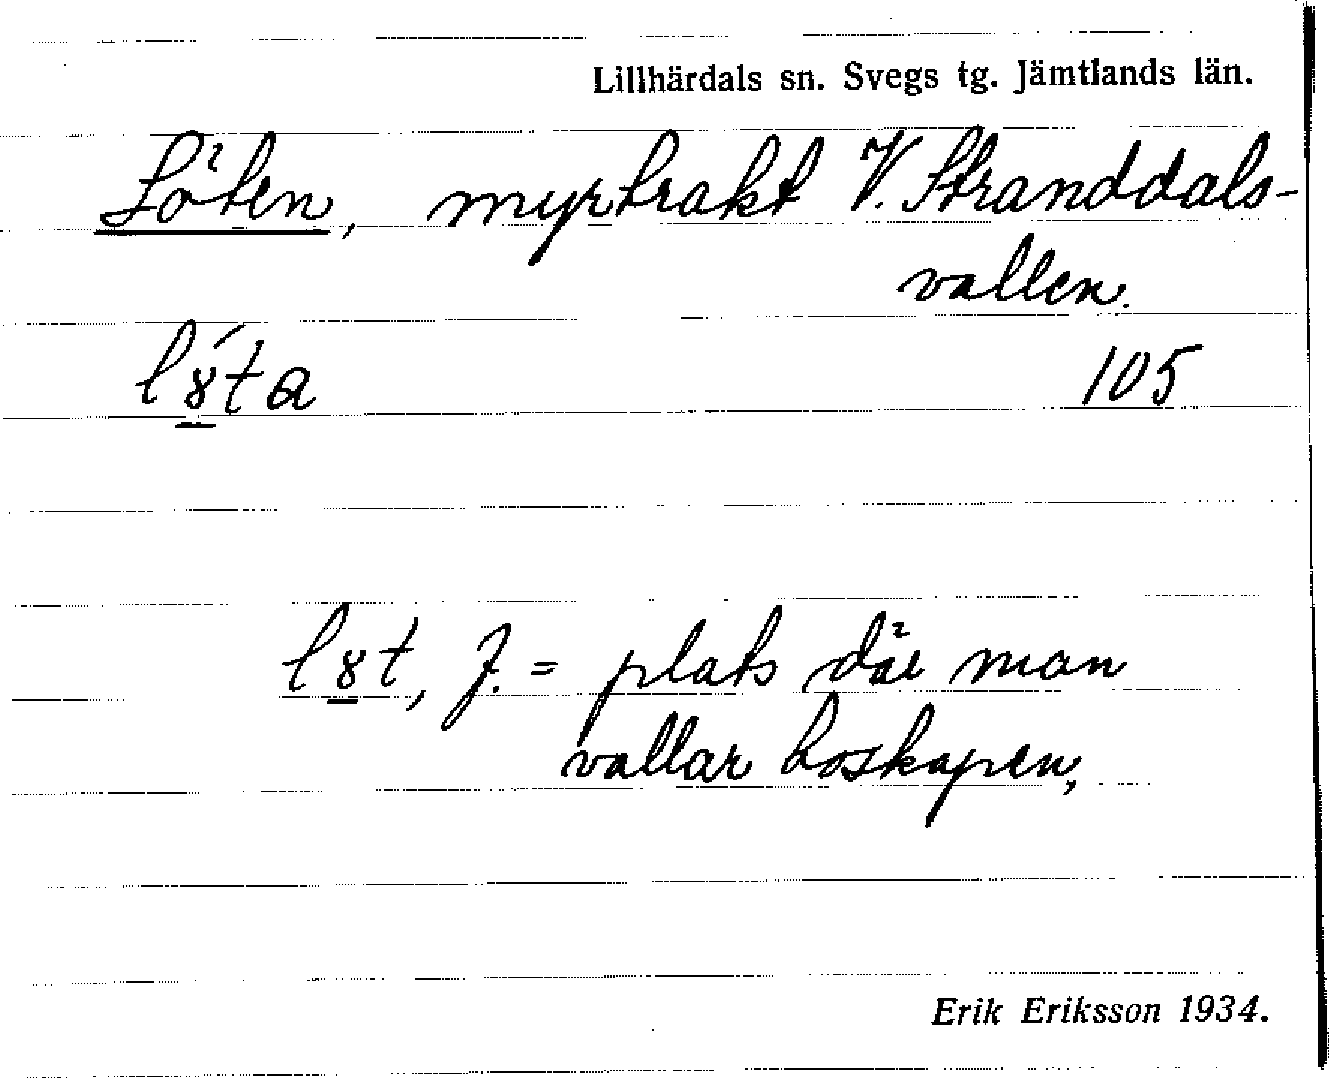 Lillhärdals sn. Svegs tg. Jämtlands län.
Löten, myrtrakt V. Stranddals-
vallen.
l8̲́ta
105
l8̲t, f. = plats där man
vallar boskapen,
Erik Eriksson 1934.